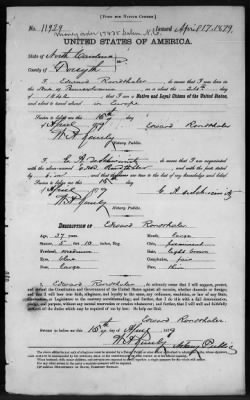 [Form for Native Citizen.]
No. 11929 Issued April 17, 1879
UNITED STATES OF AMERICA.
State of North Carolina
County of Forsyth
I, Edward Rondthaler, do swear that I was born in the
State of Pennsylvania, on or about the 24th day
of 1842; that I am a Native and Loyal Citizen of the United States,
and about to travel abroad in Europe
Sworn to before me this 15th day
of April 1879 Edward Rondthaler
Notary Public.
I, E. A. de Schweinitz, do swear that I am acquainted
with the above named Edw. Rondthaler and with the facts stated
by him and that the same are true to the best of my knowledge and belief.
Sworn to before me this 15th day
of April 1879 E A de Schweinitz
Notary Public.
DESCRIPTION OF Edward Rondthaler
Age, 37 years Mouth, large
Stature, 5 feet 10 inches, Eng. Chin, prominent
Forehead, medium Hair, light brown
Eyes, blue Complexion, fair
Nose, large Face, thin
I, Edward Rondthaler, do solemnly swear that I will support, protect,
and defend the Constitution and Government of the United States against all enemies, whether domestic or foreign;
and that I will bear true faith, allegiance, and loyalty to the same, any ordinance, resolution, or law of any
State, Convention, or Legislature to the contrary notwithstanding; and further, that I do this with a full determination,
pledge, and purpose, without any mental reservation or evasion whatsoever; and further, that I will well and faithfully
perform all the duties which may be required of me by law. So help me God.
Edward Rondthaler
Sworn to before me this 15th day of April 1879
Notary Public